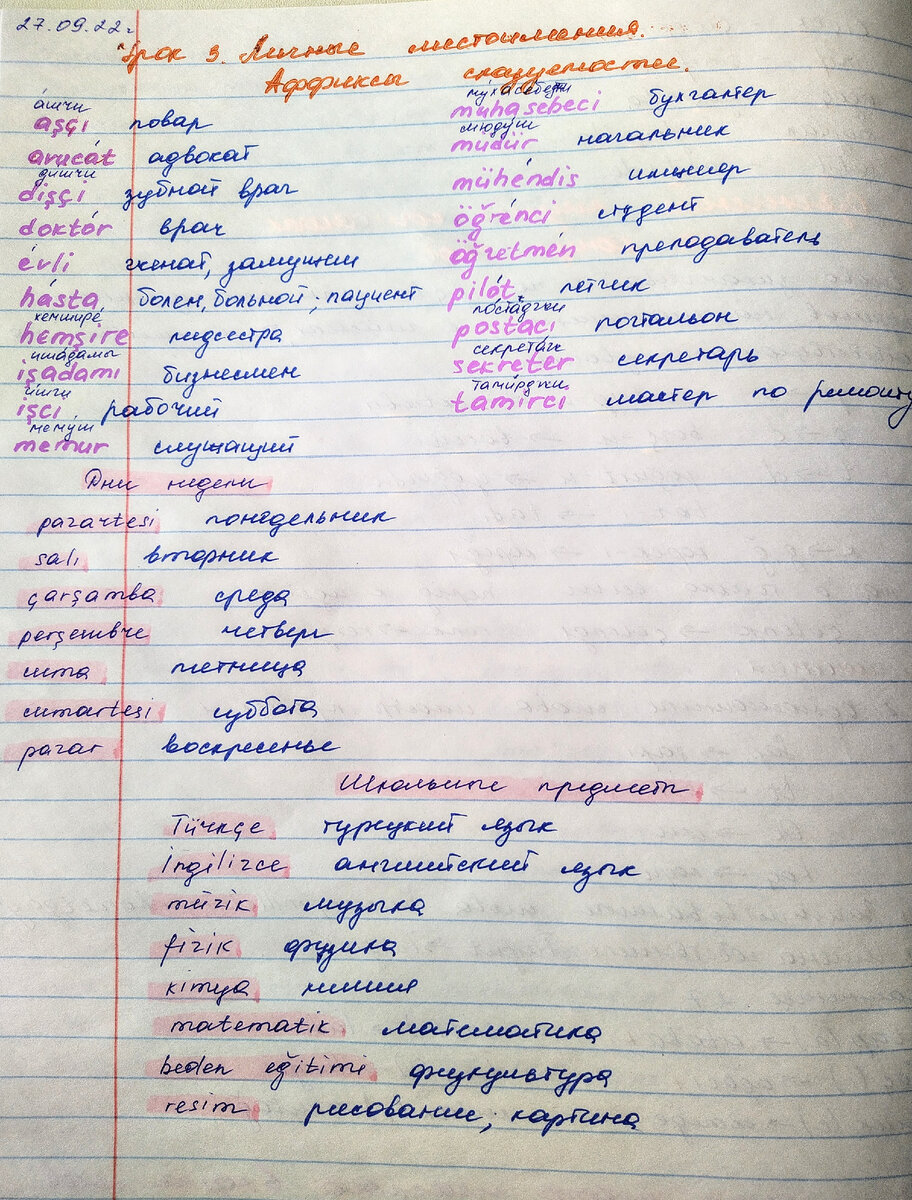 27.09.22г.
Урок 3. Личные местоимения.
Аффиксы сказуемости.
а́шчи
aşçı повар
avucát адвокат
дишчи
dişçi зубной врач
doktór врач
évli женат, замужем
hásta болен, больной; пациент
хемшире
hemşire медсестра
ишадамы
işadamı бизнесмен
ишчи
işçi рабочий
мемур
memur служащий
мухасебеджи
muhasebeci бухгалтер
мюдюр
müdür начальник
mühéndis инженер
öğrénci студент
öğretmén преподаватель
pilót летчик
постаджи
postacı почтальон
секретер
sekreter секретарь
тамирджи
tamirci мастер по ремонту
Дни недели
pazartesi понедельник
salı вторник
çarşamba среда
perşembre четверг
cuma пятница
cumartesi суббота
pazar воскресенье
Школьные предметы
Türkçe турецкий язык
İngilizce английский язык
müzik музыка
fizik физика
kimya химия
matematik математика
beden eğitimi физкультура
resim рисование; картина